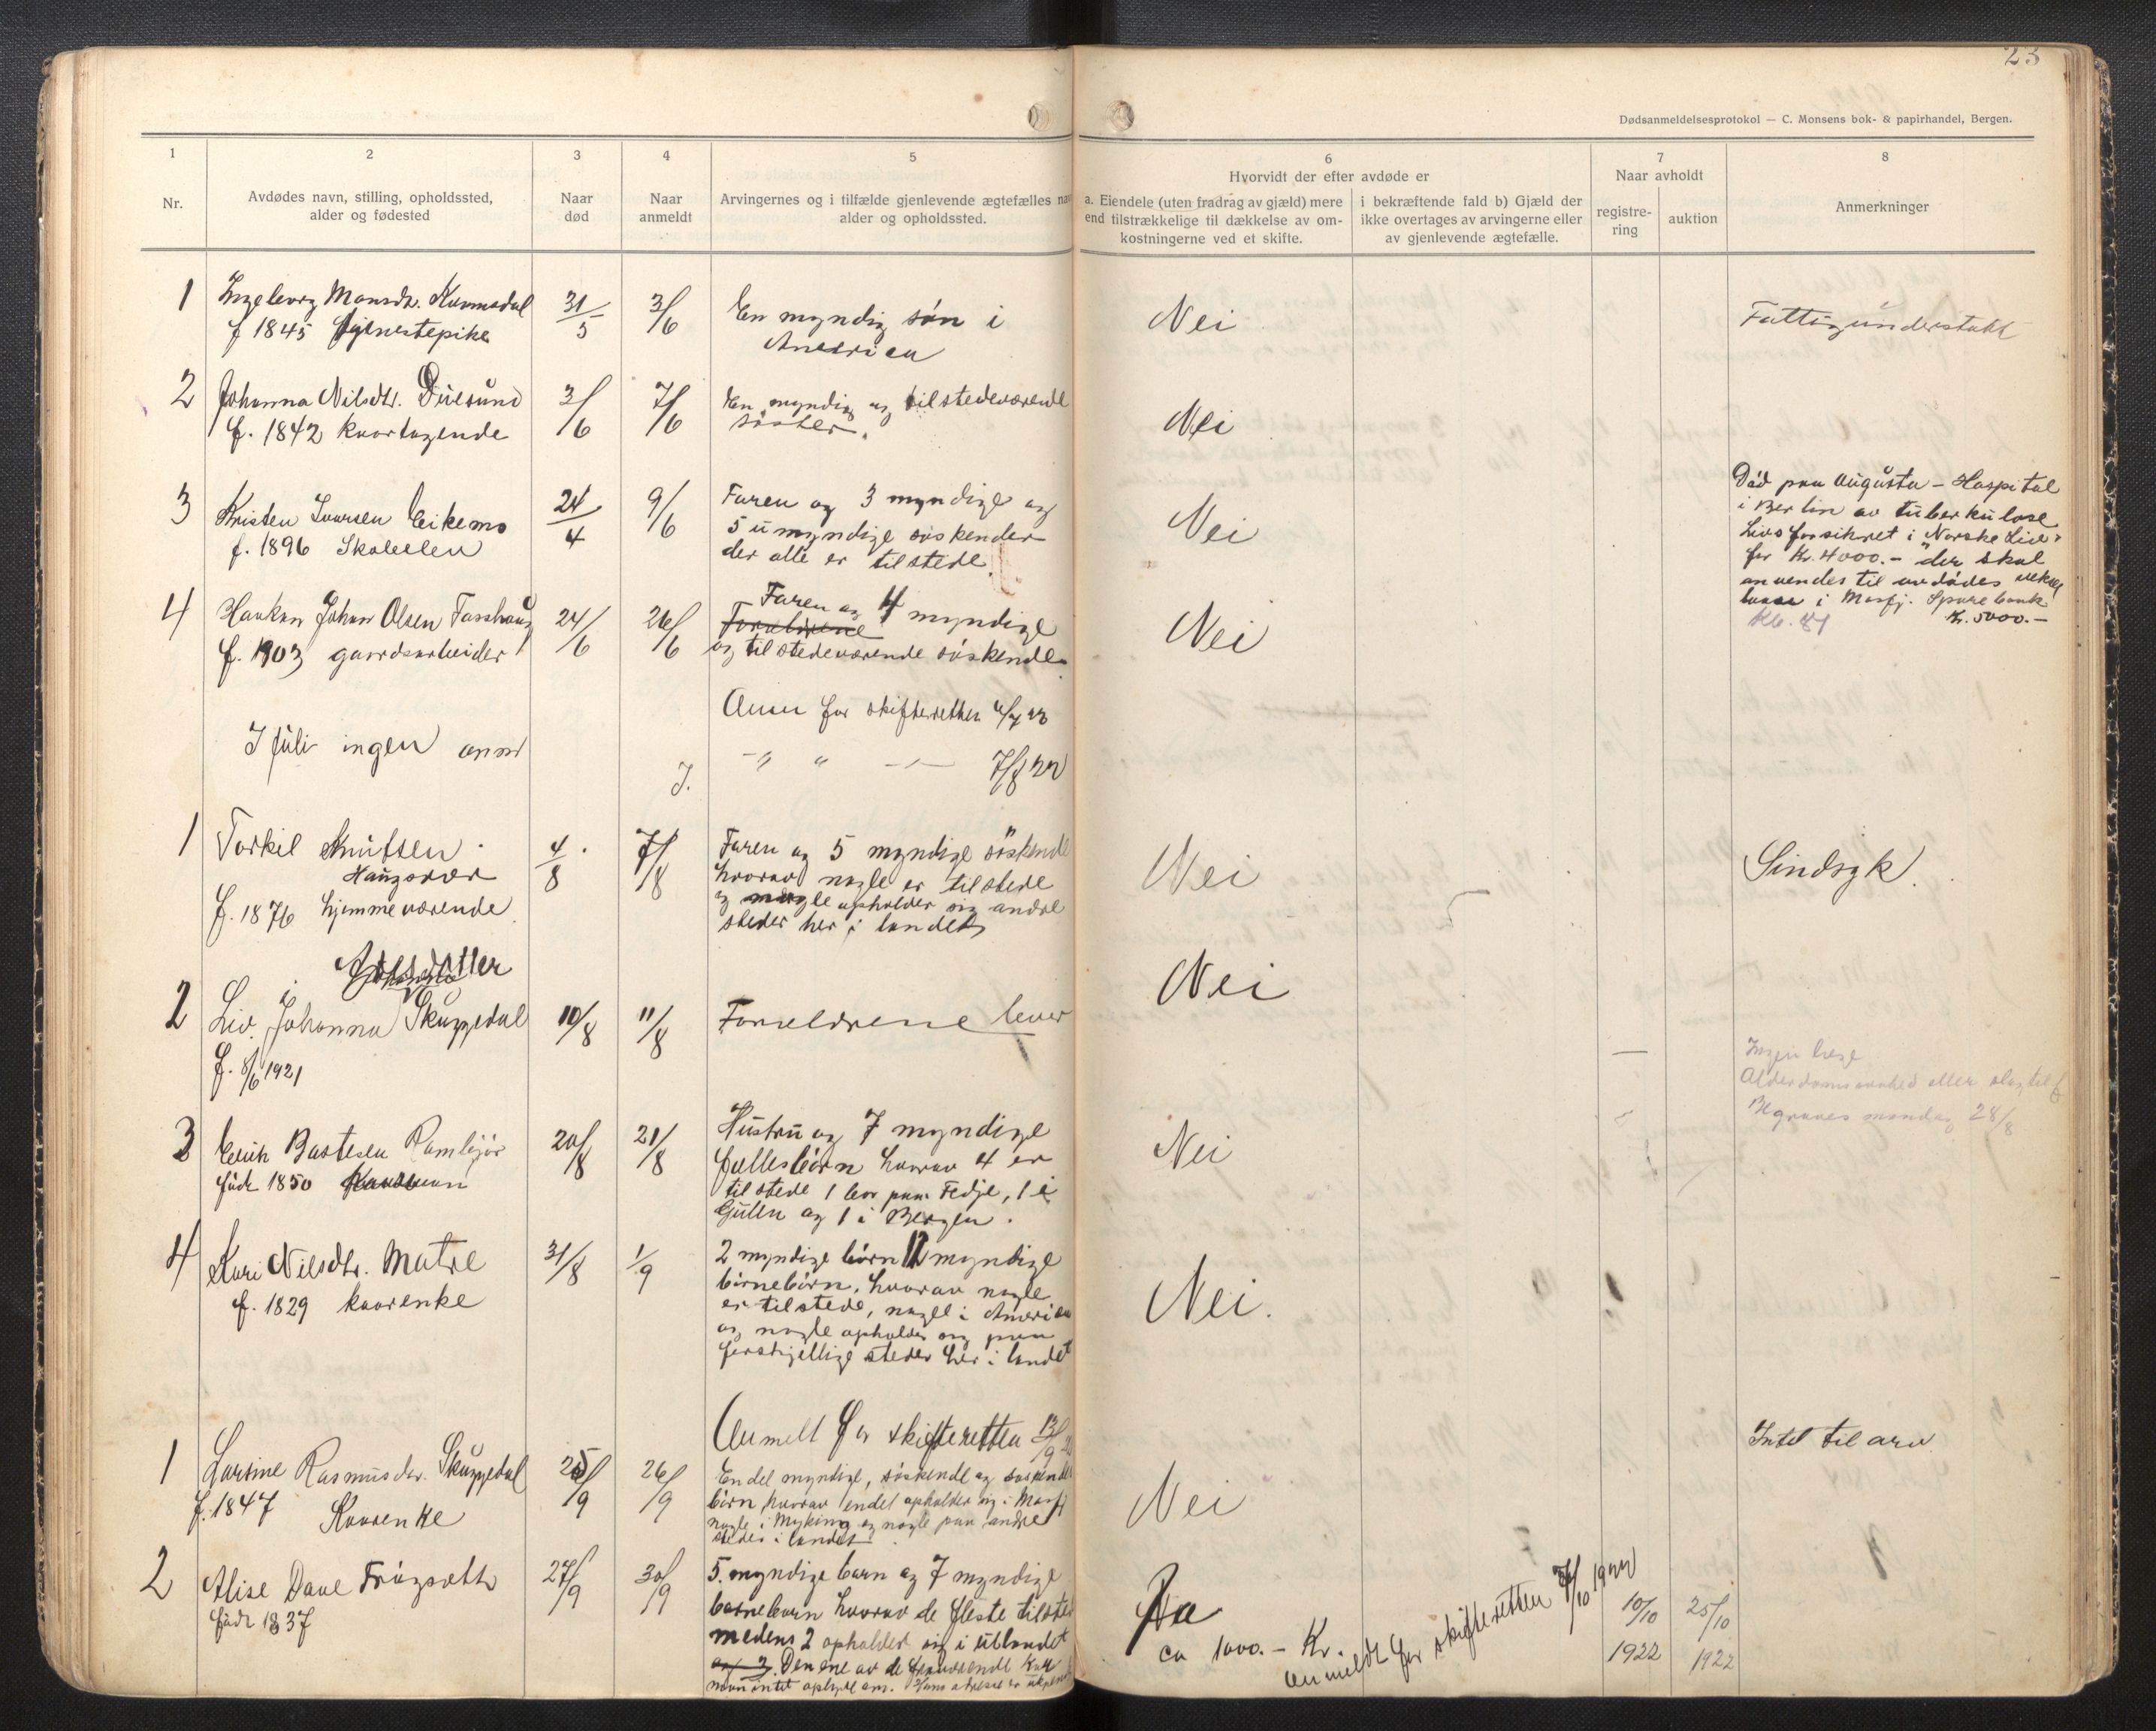 23
Dødsanmeldelsesprotokol — C. Monsens bok- & papirhandel, Bergen.
1
Nr.
2
Avdødes navn, stilling, opholdssted,
alder og fødested
3
Naar
død
4
Naar
anmeldt
5
Arvingernes og i tilfælde gjenlevende ægtefælles nav
alder og opholdssted.
6
Hvorvidt der efter avdøde er
a. Eiendele (uten fradrag av gjæld) mere
end tilstrækkelige til dækkelse av om-
kostningerne ved et skifte.
i bekræftende fald b) Gjæld der
ikke overtages av arvingerne eller
av gjenlevende ægtefælle.
7
Naar avholdt
registre-
ring
auktion
8
Anmerkninger
1 Ingeborg Monsdr. Kvamsdal 31/5 3/6 En myndig søn i Nei Fattigunderstøtt
f 1845 tjenestepike America
2 Johanna Nilsdtr. Duesund 3/6 7/6 En myndig og tilstedeværende Nei
f. 1842 kaartagende søster.
3 Kristen Ivarsen Eikemo 24/4 9/6 Faren og 3 myndige og Nei
f. 1896 Skoleelev 5 umyndige søskender
der alle er tilstede.
Død paa Augusta - Hospital
i Berlin av tuberkulose
Livsforsikret i Norske Liv
for Kr. 4000.- der skal
anvendes til avdødes
i Masfj. Sparebank
Kl. 81 Kr. 5000.-
4 Haakon Johan Olsen Tasshaug 24/6 26/6 Faren og 4 myndige Nei
Forældrene
f. 1903 gaardsarbeider og tilstedeværende søskende
Anm for skifteretten 4/7 22
I juli ingen anm
" " 7/8 22
1 Torkil Knutsen 4/8 7/8 Faren og 5 myndige søskende Nei Sindsyk.
Haugsvær hvorav nogle er tilstede
f. 1876 hjemmeværende og nogle opholder sig andre
steder her i landet
2 Liv Johanna Skuggedal 10/8 11/8 Forældrene lever Nei
f. 8/6 1921
Ingen læge
Alderdomssvakhed eller slagtilf
Begraves mandag 28/8
3 Erik Bastesen Ramsjør 20/8 21/8 Hustru og 7 myndige Nei
født 1850 fællesbørn hvorav 4 er
tilstede 1 bor paa Fedje, 1 i
Gulen og 1 i Bergen.
4 Kari Nilsdtr. Matre 31/8 1/9 2 myndige børn 12 myndige Nei.
f. 1829 kaarenke børnebørn, hvorav nogle
er tilstede, nogle i America
og nogle opholder sig paa
forskjellige steder her i landet
Anmelt for skifteretten 13/9
1 Larsine Rasmusdr. Skuggedal 25/9 26/9 En del myndige, søskende og søskende Nei Intet til arv
f. 1847 Kaarenke børn hvorav endel opholder sig i Masfj
nogle i Myking og nogle paa andre
steder i landet
2 Alise Dave Frøgsætt 27/9 30/9 5 myndige barn og 7 myndige Ja
født 1837 barnebarn hvorav de fleste tilsted
medens 2 opholder sig i utlandet
og 2. Den ene av de fraværende kan
man intet oplyse om. Hans adresse er ukjendt
ca 1000.- Kr.
Anmeldt for skifteretten 7/10 1922
10/10 1922
25/10 1922